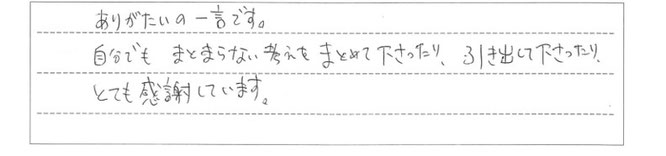 ありがたいの一言です。
自分でも まとまらない考えを まとめて下さったり、引き出して下さったり、
とても感謝しています。